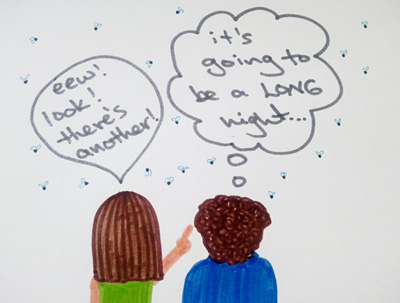 eew!
look!
there's
another!
it's
going to
be a LONG
night...